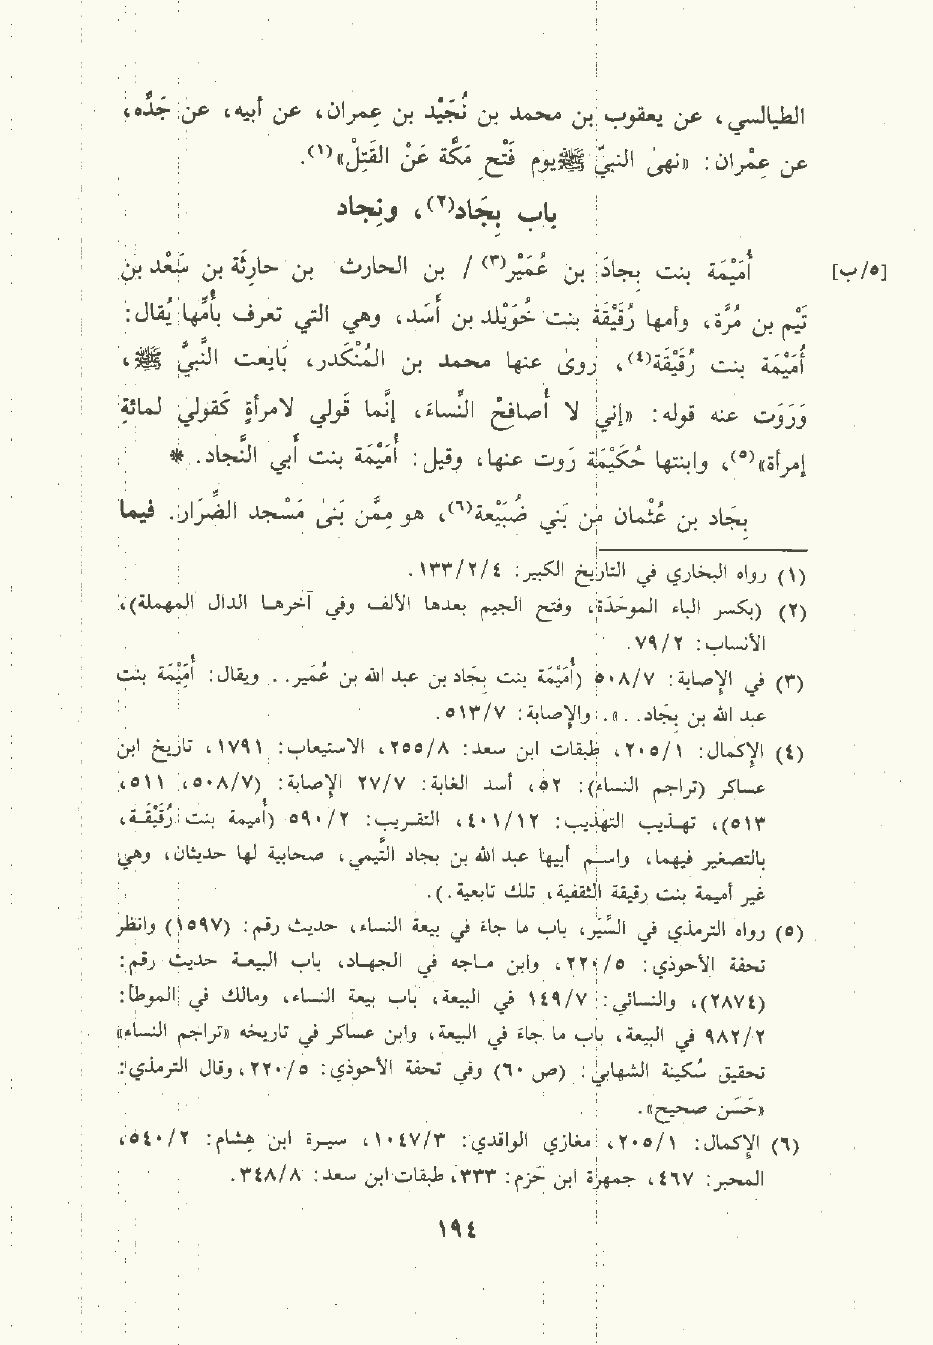 الطيالسي، عن يعقوب بن محمد بن نُجَيْد بن عِمران، عن أبيه، عن جَدَّه،
عن عِمْران: «نهىٰ النبيّ ﷺ يوم فَتْحِ مَكَّة عَنْ القَتِلْ»(١).
باب بِجَاد(٢)، ونِجاد
[٥/ب] أُمَيْمَة بنت بجاد بن عُمَيْر(٣) / بن الحارث بن حارِثَة بن سَعْد بن
تَيْم بن مُرَّة، وأمها رُقَيْقَة بنت خُوَيْلد بن أَسَد، وهي التي تعرف بأُمِّها يُقال:
أُمَيْمَة بنت رُقَيْقَة(٤)، روىٰ عنها محمد بن المُنْكَدر، بَايَعت النَّبيَّ ﷺ،
وَرَوَت عنه قوله: «إني لا أصافِحُ النِّساءَ، إنَّما قَولي لامرأةٍ كَقولي لمائةِ
إمرأة»(٥)، وابنتها حُكَيْمَة رَوت عنها، وقيل: أُمَيْمَة بنت أبي النَّجاد. *
بِجَاد بن عُثْمان من بَني ضُبَيْعة(٦)، هو مِمَّن بَنىٰ مَسْجد الضِّرَار. فيما
(١) رواه البخاري في التاريخ الكبير: ١٣٣/٢/٤.
(٢) (بكسر الباء الموحَدَة، وفتح الجيم بعدها الألف وفي آخرها الدال المهملة)،
الأنساب: ٧٩/٢.
(٣) في الإصابة: ٥٠٨/٧ (أُمَيْمَة بنت بجَاد بن عبد الله بن عُمَير. . ويقال: أُمَيْمَة بنت
عبد الله بن بِجَاد. . .». والإصابة: ٥١٣/٧.
(٤) الإكمال: ٢٠٥/١، طبقات ابن سعد: ٢٥٥/٨، الاستيعاب: ١٧٩١، تاريخ ابن
عساكر (تراجم النساء): ٥٢، أسد الغابة: ٢٧/٧ الإصابة: (٥٠٨/٧، ٥١١،
٥١٣)، تهذيب التهذيب: ٤٠١/١٢، التقريب: ٥٩٠/٢ (أُميمة بنت رُقَيْقَة،
بالتصغير فيهما، واسم أبيها عبد الله بن بجاد التَّيمي، صحابية لها حديثان، وهي
غير أميمة بنت رقيقة الثقفية، تلك تابعية.).
(٥) رواه الترمذي في السِّيَر، باب ما جاءَ في بيعة النساء، حديث رقم: (١٥٩٧) وانظر
تحفة الأحوذي: ٢٢٠/٥، وابن ماجه في الجهاد، باب البيعة حديث رقم:
(٢٨٧٤)، والنسائي: ١٤٩/٧ في البيعة، باب بيعة النساء، ومالك في الموطأ:
٩٨٢/٢ في البيعة، باب ما جاءَ في البيعة، وابن عساكر في تاريخه «تراجم النساء»
تحقيق سُكينة الشهابي: (ص ٦٠) وفي تحفة الأحوذي: ٢٢٠/٥، وقال الترمذي:
«حَسَن صحيح».
(٦) الإكمال: ٢٠٥/١، مغازي الواقدي: ١٠٤٧/٣، سيرة ابن هِشام: ٥٤٠/٢،
المحبر: ٤٦٧، جمهرة ابن حَزم: ٣٣٣، طبقات ابن سعد: ٣٤٨/٨.
١٩٤